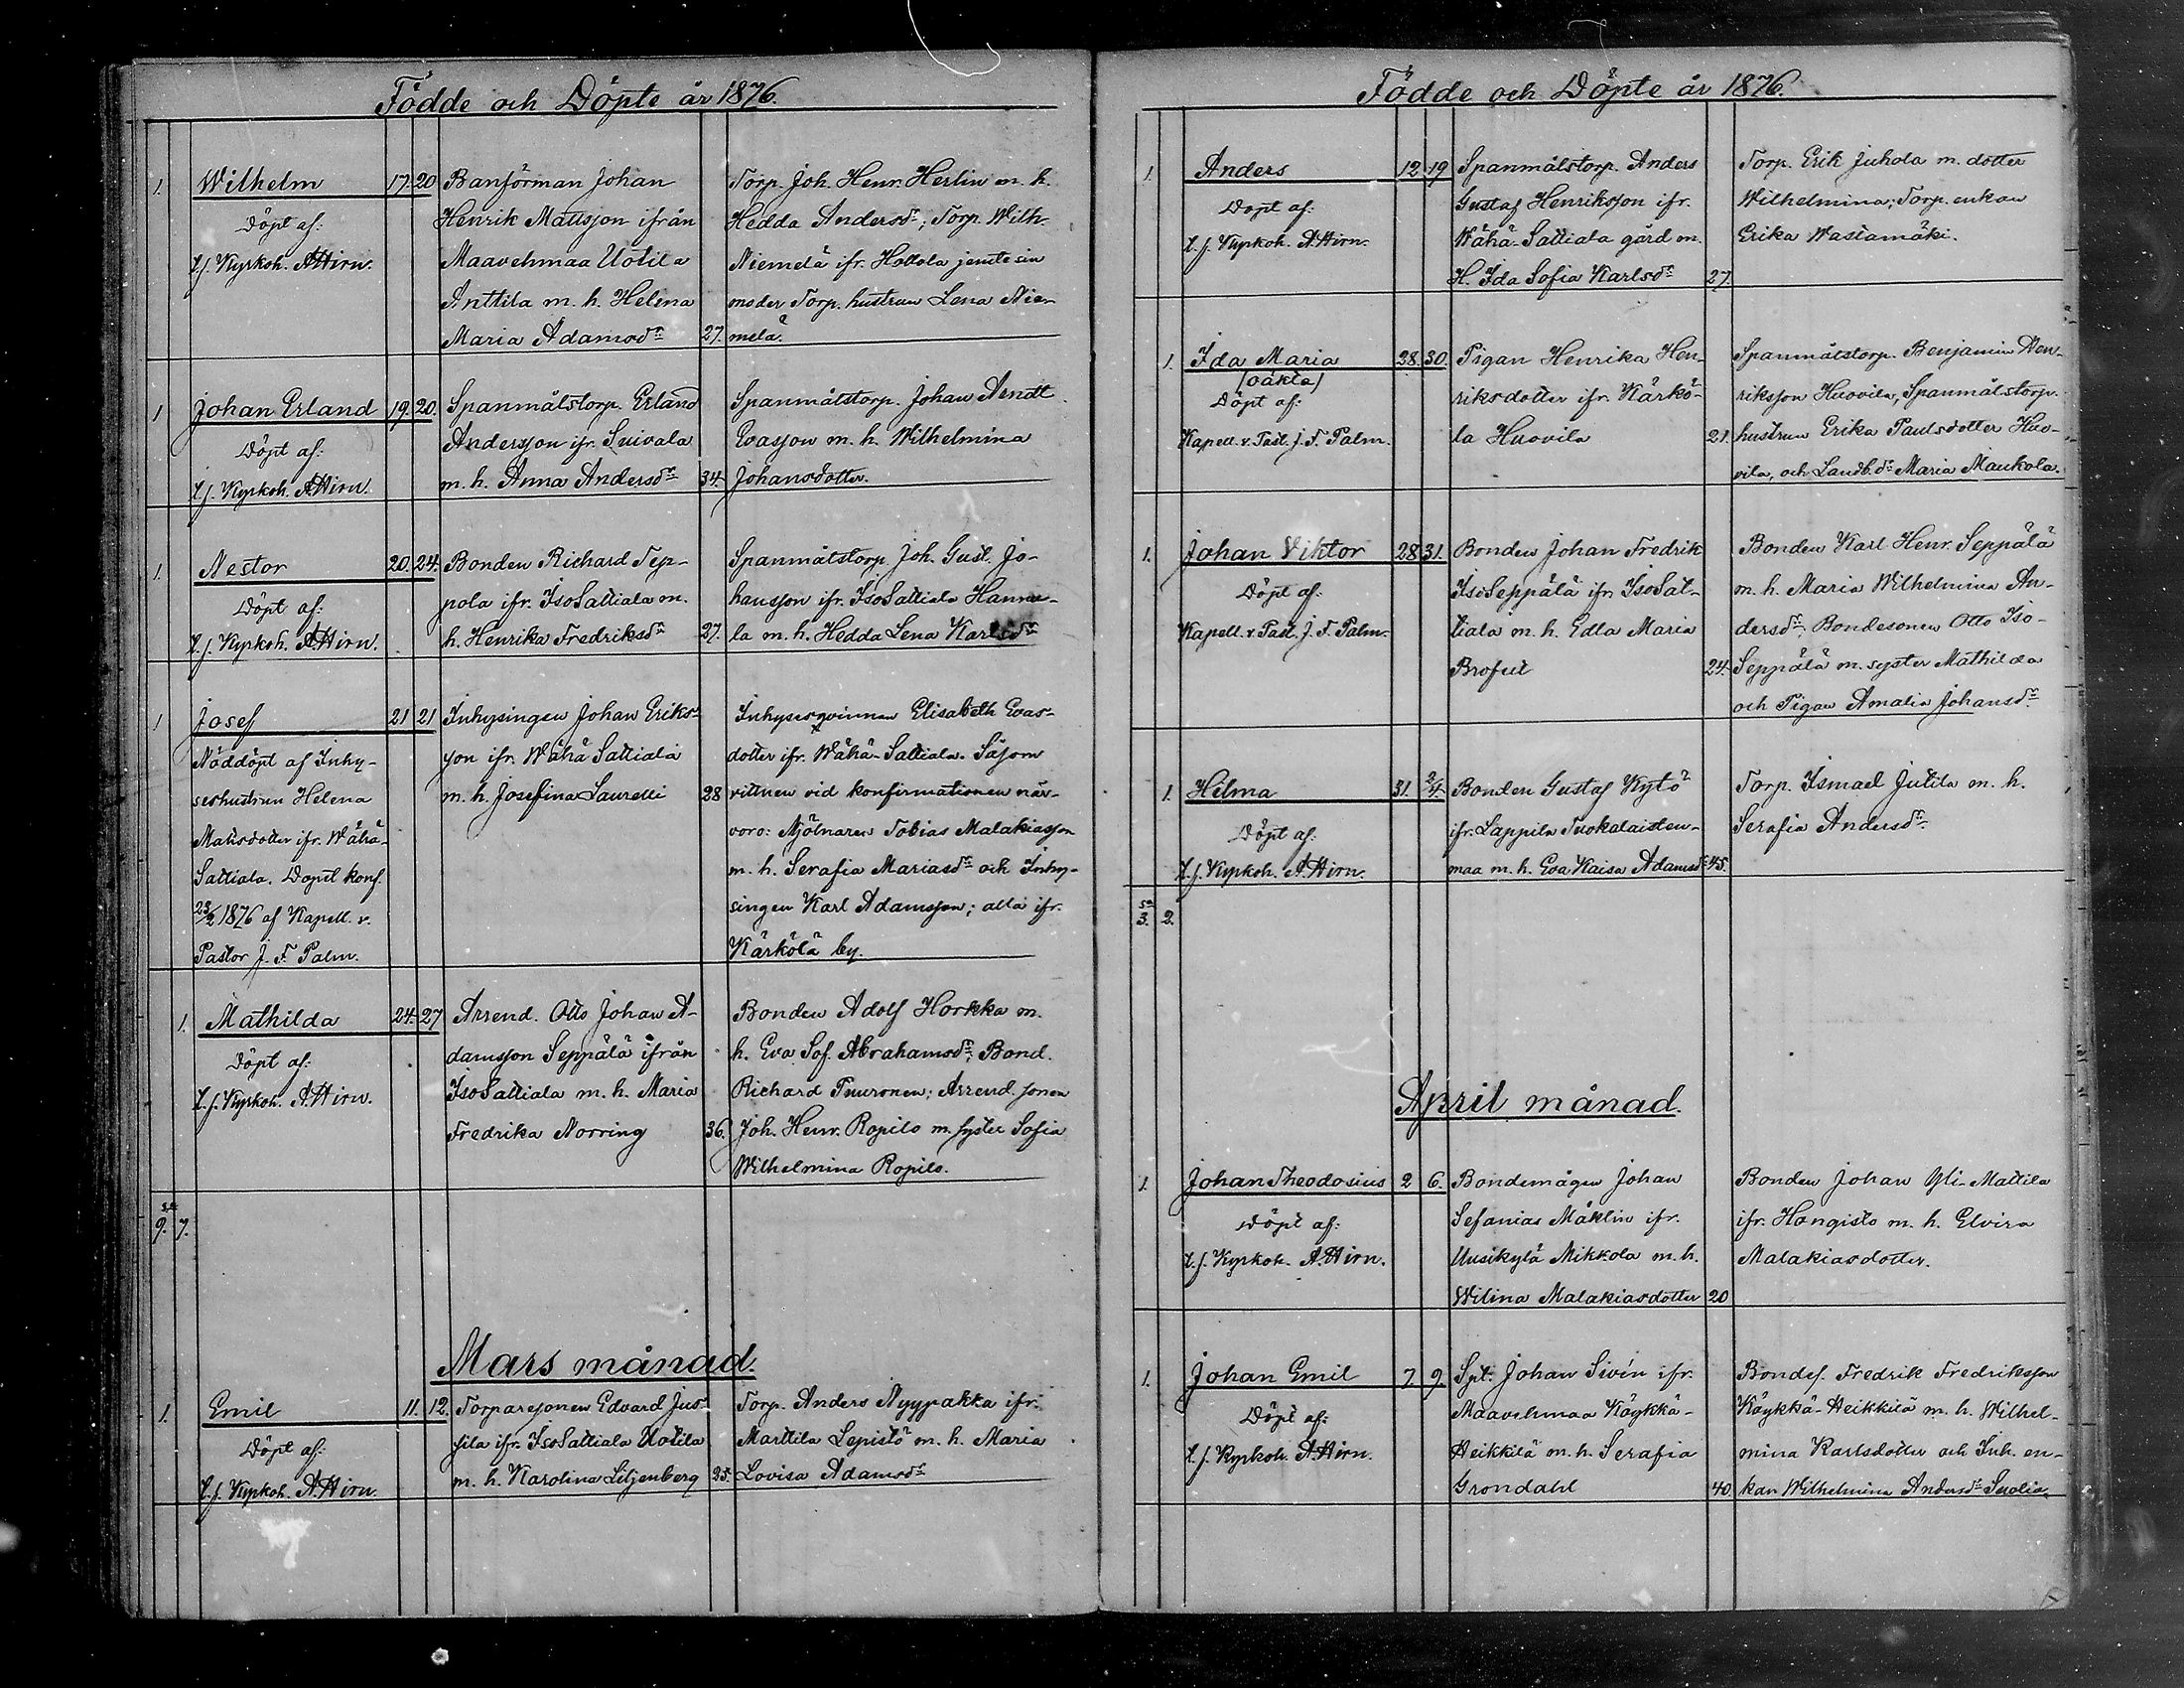 Födde och Döpte år 1876.
1. Wilhelm 17. 20 Banförman Johan Torp. Joh. Henr. Herlin m. h.
Döpt af: Henrik Mattsson ifrån Hedda Andersdr; Torp. Wilh.
t. f. Kyrkoh. A. Hirn. Maavehmaa Uotila Niemelä ifr. Hollola jemte sin
Anttila m. h. Helena moder Torp. hustrun Lena Nie-
Maria Adamsdr 27. melä.
1 Johan Erland 19. 20. Spanmålstorp. Erland Spanmålstorp. Johan Arndt
Döpt af: Andersson ifr. Suivala Evasson m. h. Wilhelmina
t. f. Kyrkoh. A. Hirn. m. h. Anna Andersdr 34. Johansdotter.
1. Nestor 20. 24. Bonden Richard Tep- Spanmålstorp. Joh. Gust. Jo-
Döpt af: pola ifr. IsoSattiala m. hansson ifr. IsoSattiala Hannu-
t. f. Kyrkoh. A. Hirn. h. Henrika Fredriksdr 27. la m. h. Hedda Lena Karlsdr
1 Josef 21 21 Inhysingen Johan Eriks- Inhysesqvinnan Elisabeth Evas-
Nöddöpt af Inhy- son ifr. Wähä Sattiala dotter ifr. Wähä-Sattiala. Såsom
seshustrun Helena m. h. Josefina Laurelli 28 vittnen vid konfirmationen när-
Matsdotter ifr. Wähä- voro: Mjölnaren Tobias Malakiasson
Sattiala. Döpel konf. m. h. Serafia Mariasdr och Inhy-
23/2 1876 af Kapell. v. singen Karl Adamsson; alla ifr.
Pastor J. F. Palm. Kärkölä by.
1. Mathilda 24. 27 Arrend. Otto Johan A- Bonden Adolf Horkka m.
Döpt af: damsson Seppälä ifrån h. Eva Sof. Abrahamsdr; Bond.
t. f. Kyrkoh. A. Hirn. IsoSattiala m. h. Maria Richard Puuronen; Arrend. sonen
Fredrika Norring 36. Joh. Henr. Ropilo m. syster Sofia
Wilhelmina Ropilo.
sa
9. 7.
Mars månad.
1. Emil 11. 12. Torparesonen Edvard Jus- Torp. Anders Nyypakka ifr.
Döpt af: sila ifr. IsoSattiala Uotila Marttila Lepistö m. h. Maria
t. f. Kyrkoh. A. Hirn. m. h. Karolina Liljenberg 25. Lovisa Adamsdr
Födde och Döpte år 1876.
1. Anders 12 19 Spanmålstorp. Anders Torp. Erik Juhola m. dotter
Döpt af: Gustaf Henriksson ifr. Wilhelmina; Torp. enkan
t. f. Kyrkoh. A. Hirn. Wähä-Sattiala gård m. Erika Wastamäki.
H. Ida Sofia Karlsdr 27.
1. Ida Maria 28. 30. Pigan Henrika Hen- Spanmålstorp. Benjamin Hen-
(oäkta)
Döpt af: riksdotter ifr. Kärkö- riksson Huovila, Spanmålstorp.
Kapell. v. Past. J. F. Palm. la Huovila 21. hustrun Erika Paulsdotter Huo-
vila, och Landb. dr Maria Maukola.
1. Johan Viktor 28 31. Bonden Johan Fredrik Bonden Karl Henr. Seppälä
Döpt af: IsoSeppälä ifr. IsoSat- m. h. Maria Wilhelmina An-
Kapell. v. Past. J. F. Palm. tiala m. h. Edla Maria dersdr; Bondesonen Otto Iso-
Brofelt 24. Seppälä m. syster Mathilda
och Pigan Amalia Johansdr
1. Hilma 31. 2/4. Bonden Gustaf Kytö Torp. Ismael Jutila m. h.
Döpt af: ifr. Lappila Tuokalaisten- Serafia Andersdr
t. f. Kyrkoh. A. Hirn. maa m. h. Eva Kaisa Adamsdr 45.
sa
3. 2.
April månad.
1. Johan Theodosius 2 6. Bondemågen Johan Bonden Johan Yli-Mattila
Döpt af: Sefanias Mäklin ifr. ifr. Hongisto m. h. Elvira
t. f. Kyrkoh. A. Hirn. Uusikylä Mikkola m. h. Malakiasdotter.
Wilina Malakiasdotter 20
1. Johan Emil 7 9. Spt. Johan Sivén ifr. Bondes. Fredrik Fredriksson
Döpt af: Maavehmaa Köykkä- Köykkä-Heikkilä m. h. Wilhel-
t. f. Kyrkoh. A. Hirn. Heikkilä m. h. Serafia mina Karlsdotter och Inh. en-
Grondahl 40 kan Wilhelmina Andersdr Suolia.